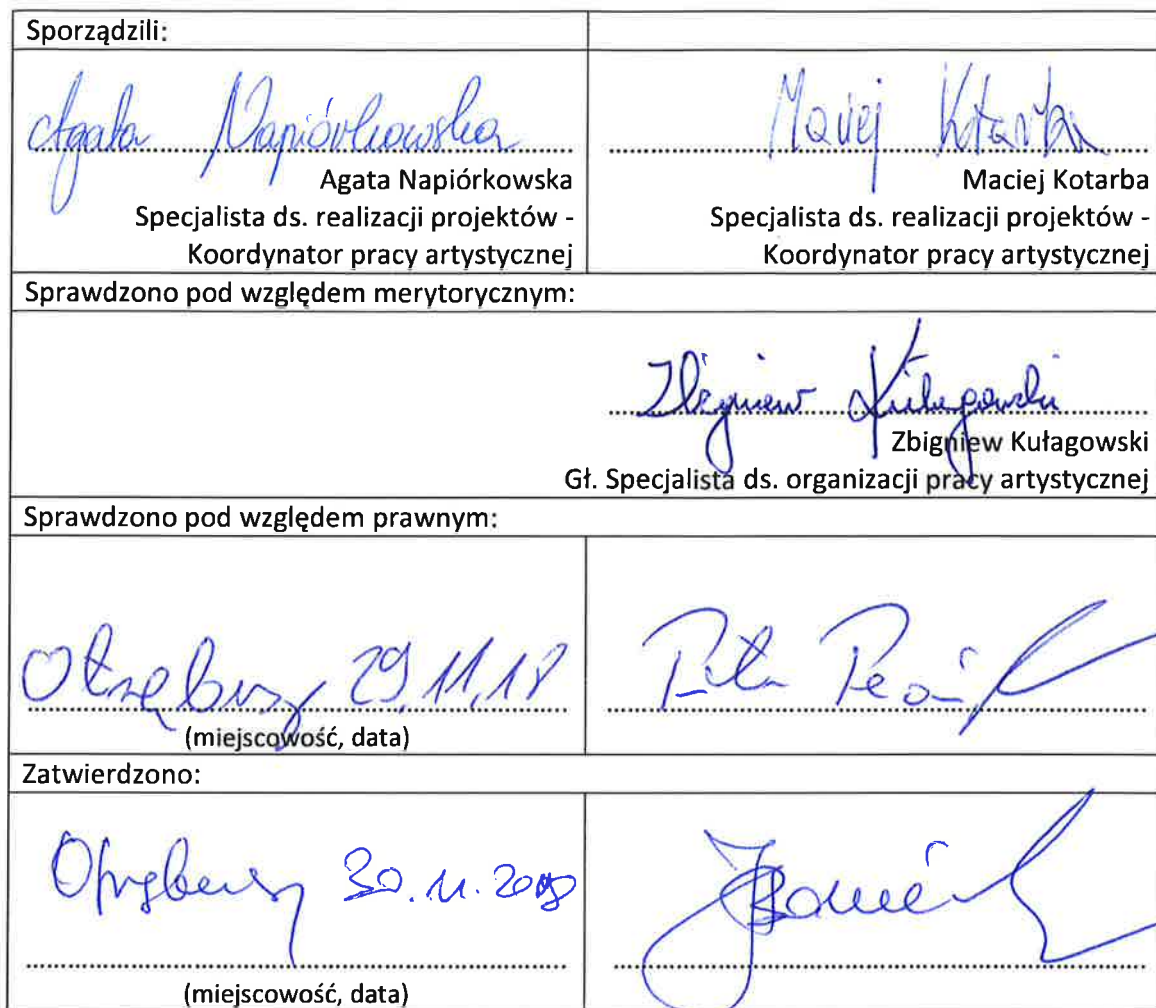 Sporządzili:
Agata Napiórkowska
Maciej Kotarba
Agata Napiórkowska
Specjalista ds. realizacji projektów -
Koordynator pracy artystycznej
Maciej Kotarba
Specjalista ds. realizacji projektów -
Koordynator pracy artystycznej
Sprawdzono pod względem merytorycznym:
Zbigniew Kułagowski
Zbigniew Kułagowski
Gł. Specjalista ds. organizacji pracy artystycznej
Sprawdzono pod względem prawnym:
Otrębusy 29.11.18
(miejscowość, data)
Zatwierdzono:
Otrębusy 30.11.2018
(miejscowość, data)